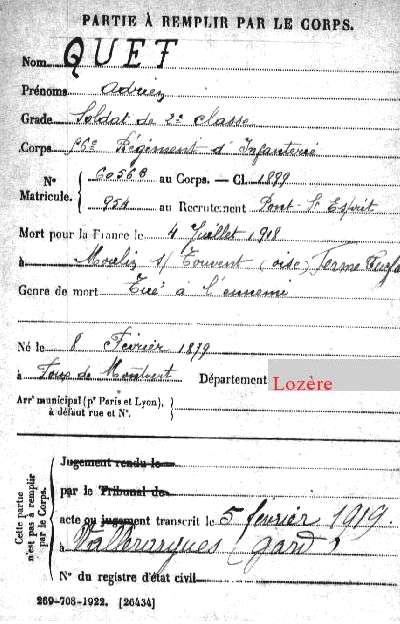 PARTIE À REMPLIR PAR LE CORPS.
Nom QUET
Prénoms Adrien
Grade Soldat de 2e classe
Corps 56e Régiment d'Infanterie
N° Matricule. { 60560 au Corps. — Cl. 1899
954 au Recrutement Pont-St Esprit
Mort pour la France le 4 Juillet 1918
à Moulin s/ Touvent (oise) Ferme
Genre de mort Tué à l'ennemi
Né le 8 Février 1879
à de Montvert Département Lozère
Arrt municipal (pr Paris et Lyon), à défaut rue et N°. }
Cette partie n'est pas à remplir par le Corps.
Jugement rendu le
par le Tribunal de
acte ou jugement transcrit le 5 février 1919.
à Vallérargues (gard)
N° du registre d'état civil
269-708-1922. [26434]